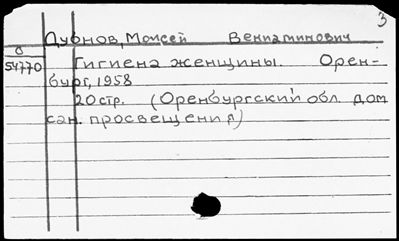 3
Дубнов, Моисей Вениаминович
0
54770
Гигиена женщины. Орен-
бург, 1958
20стр. (Оренбургский обл. дом
сан. просвещения)